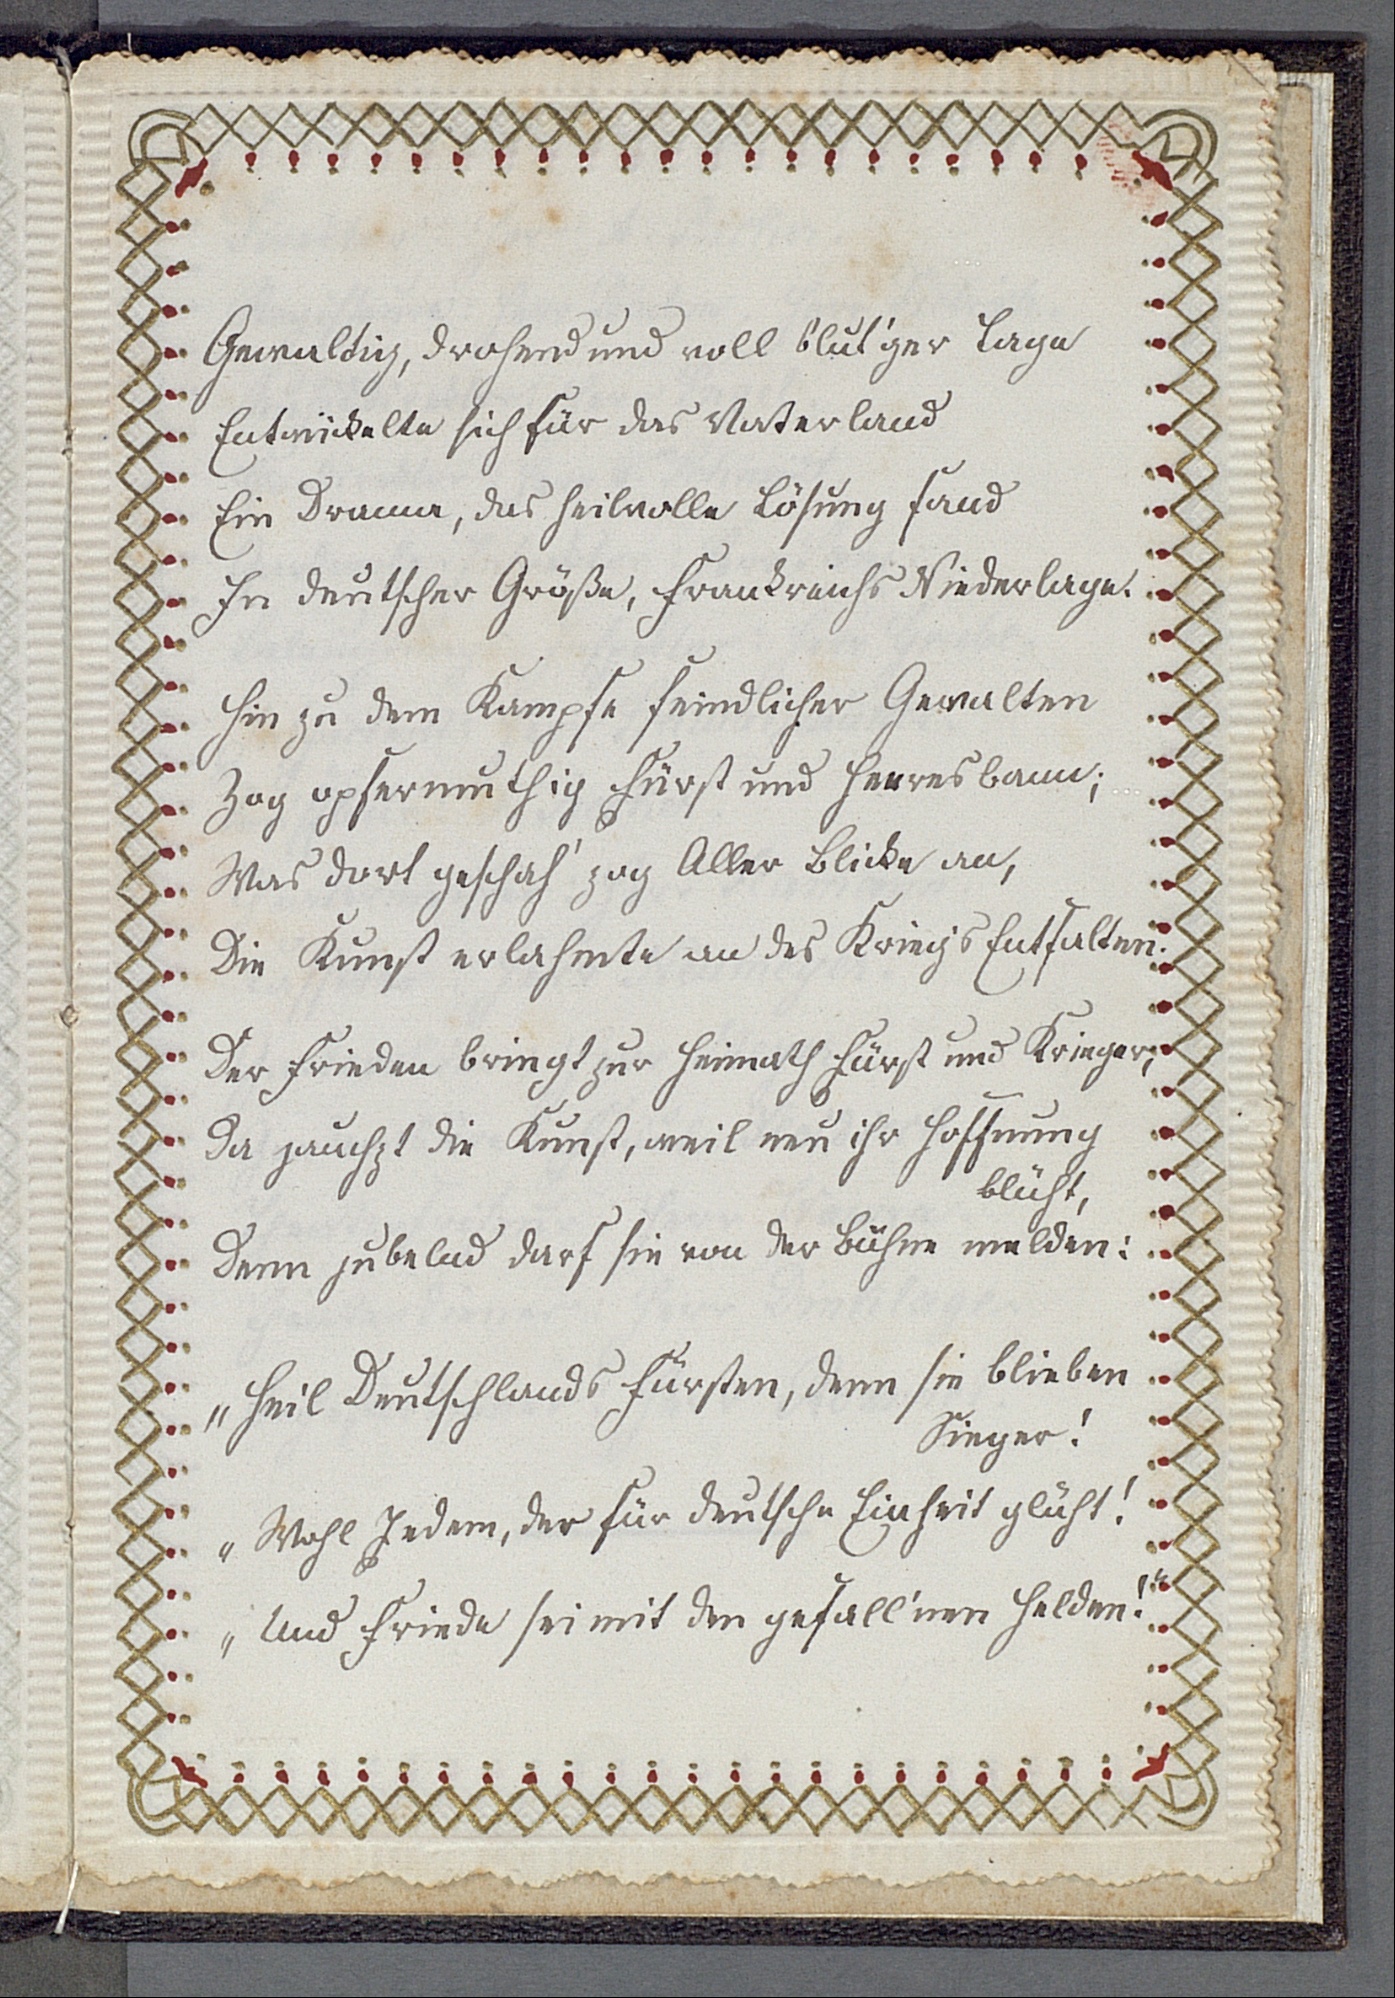 Gewaltig, drohend und voll blut'ger Tage
Entwickelte sich für das Vaterland
Ein Drama, das heilvolle Lösung fand
In deutscher Größe, Frankreichs Niederlage.
Hin zu dem Kampfe feindlicher Gewalten
Zog opfermuthig Fürst und Heeresbann;
Was dort geschah' zog Aller Blicke an,
Die Kunst erlahmte an des Krieg's Entfalten.
Der Frieden bringt zur Heimath Fürst und Krieger;
Da jauchzt die Kunst, weil neu ihr Hoffnung
blüht,
Denn jubelnd darf sie von der Bühne melden:
„Heil Deutschlands Fürsten, denn sie blieben
Sieger!
„Wohl Jedem, der für deutsche Einheit glüht!
„Und Friede sei mit den gefall'nen Helden!“